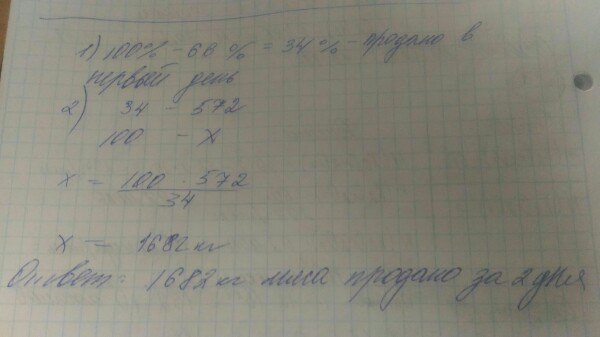 1) 100% - 66% = 34% - продано в
первый день
2) 34 - 572
100 - х
х = 100 · 572
34
х = 1682 кг
Ответ: 1682 кг мяса продано за 2 дня